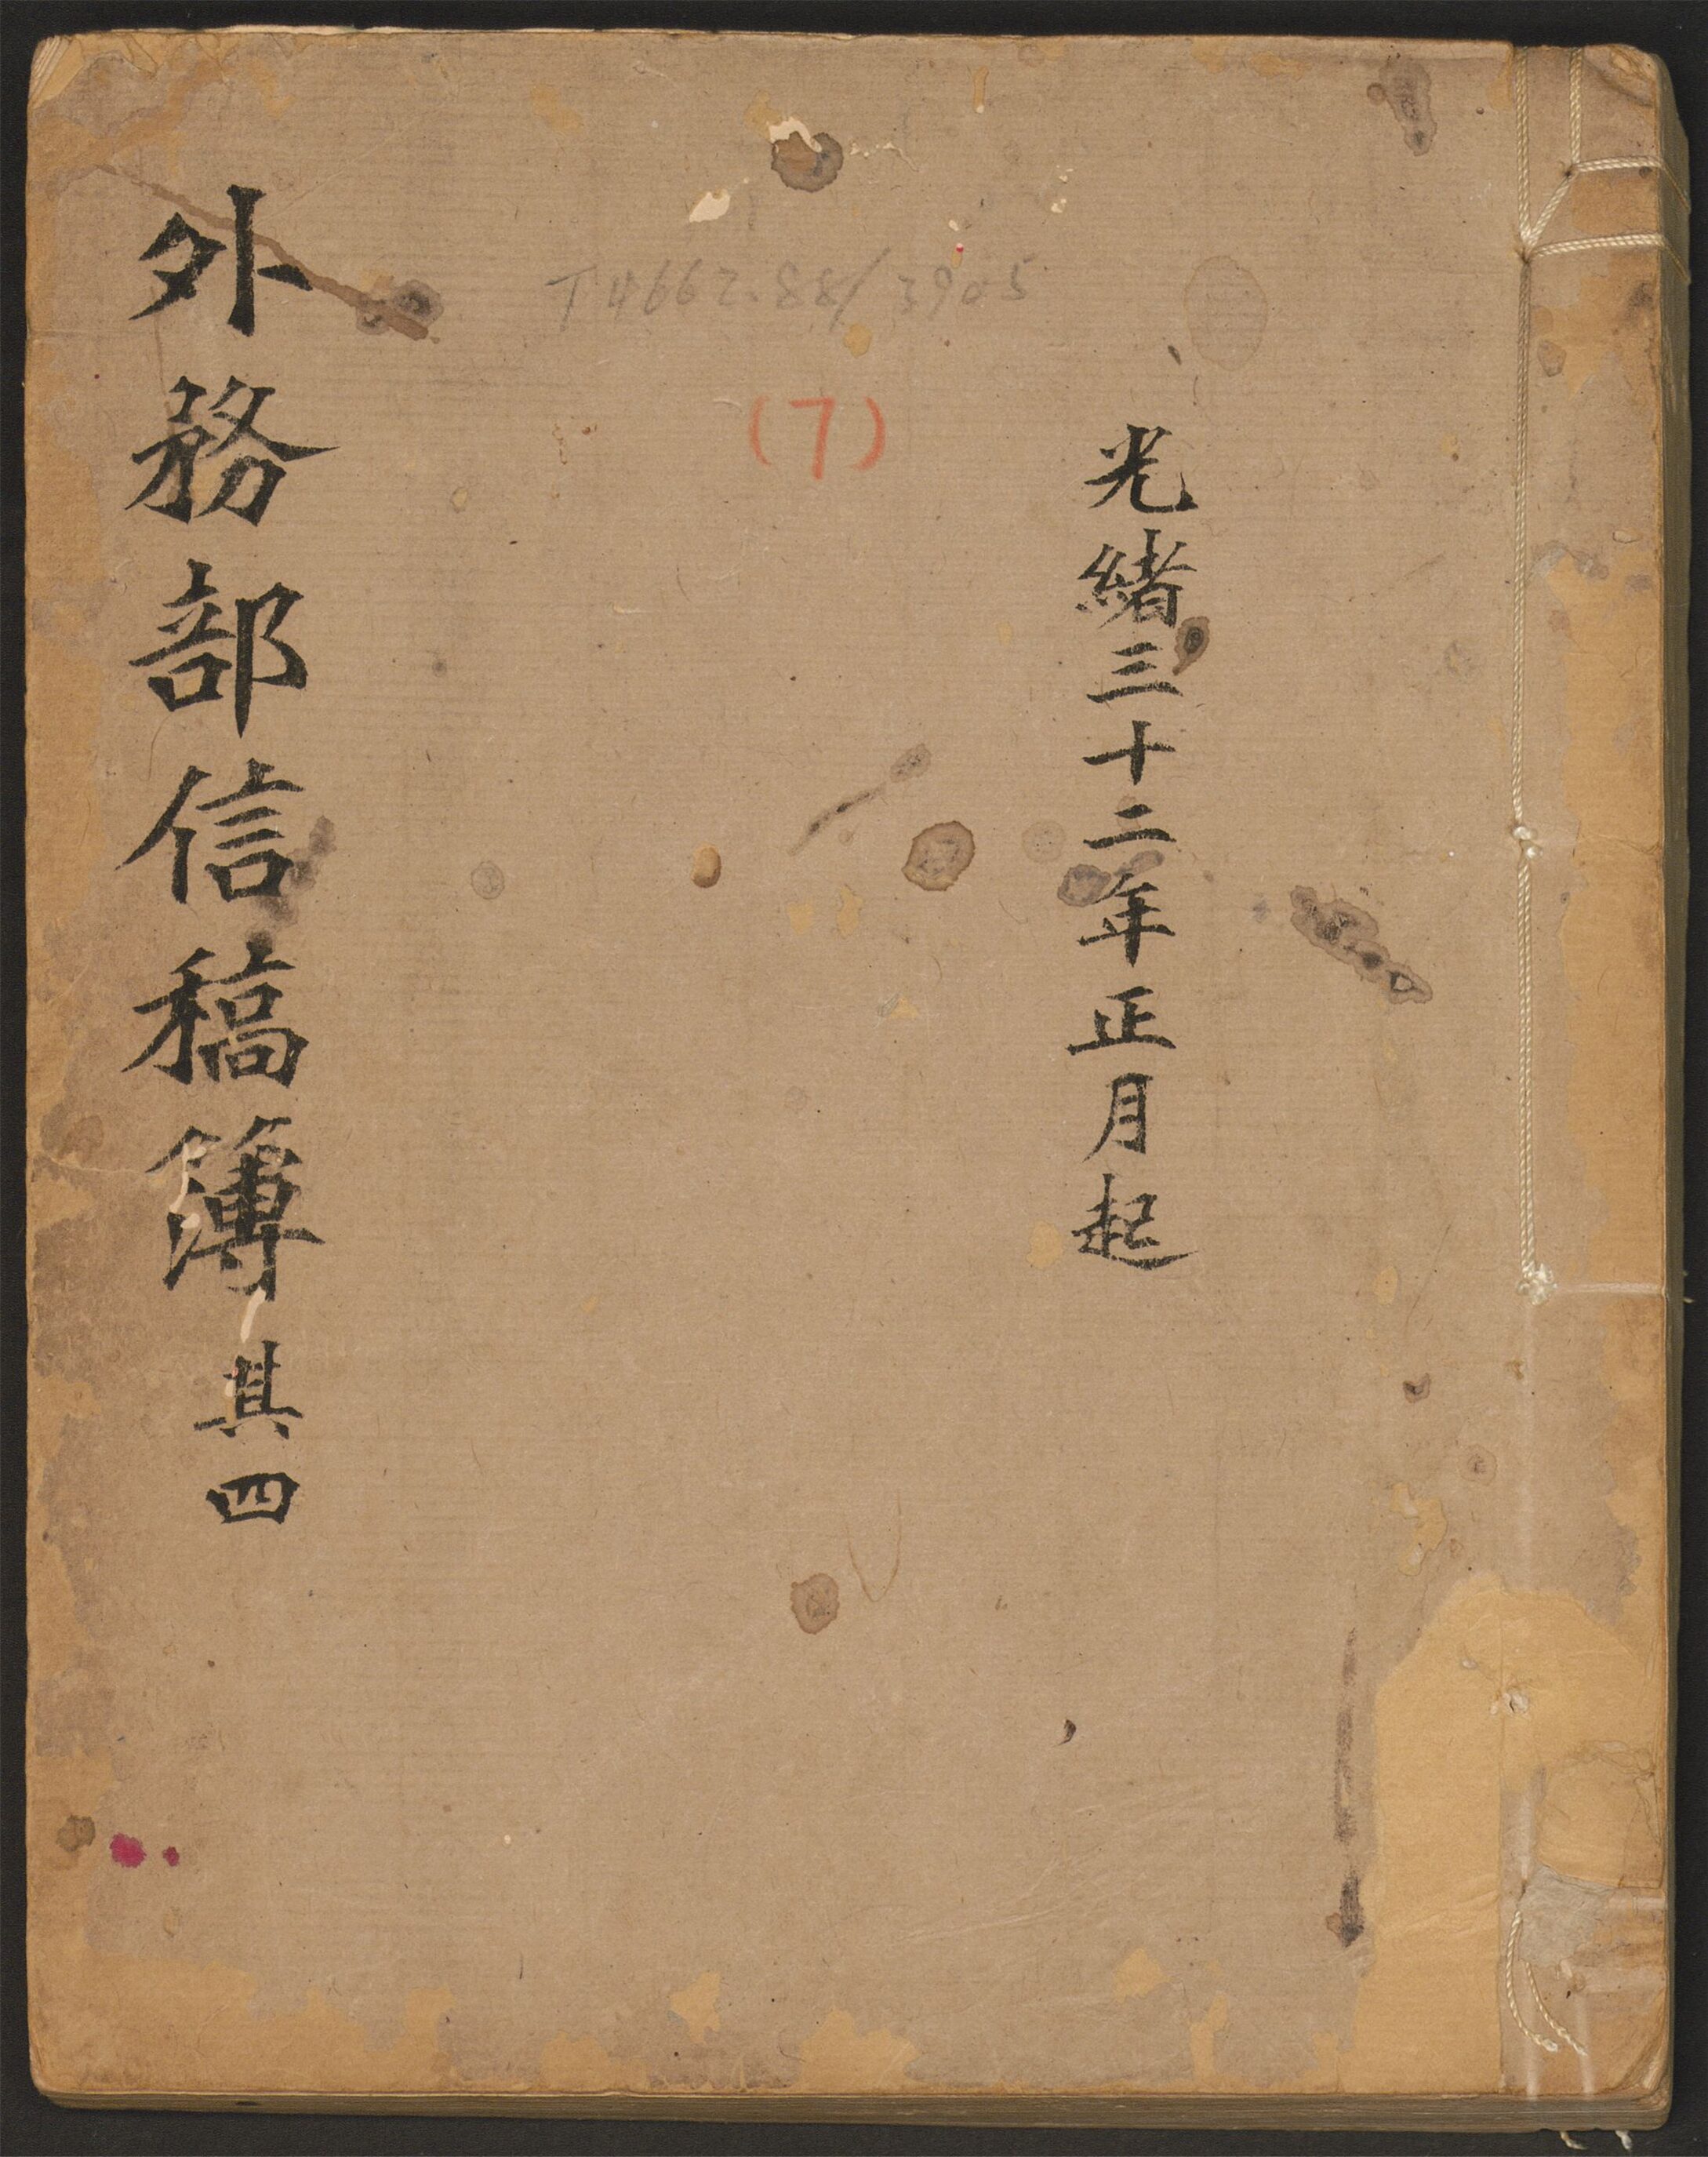 光緒三十二年正月起
外務部信稿簿其四
T4662.88/3905
(7)